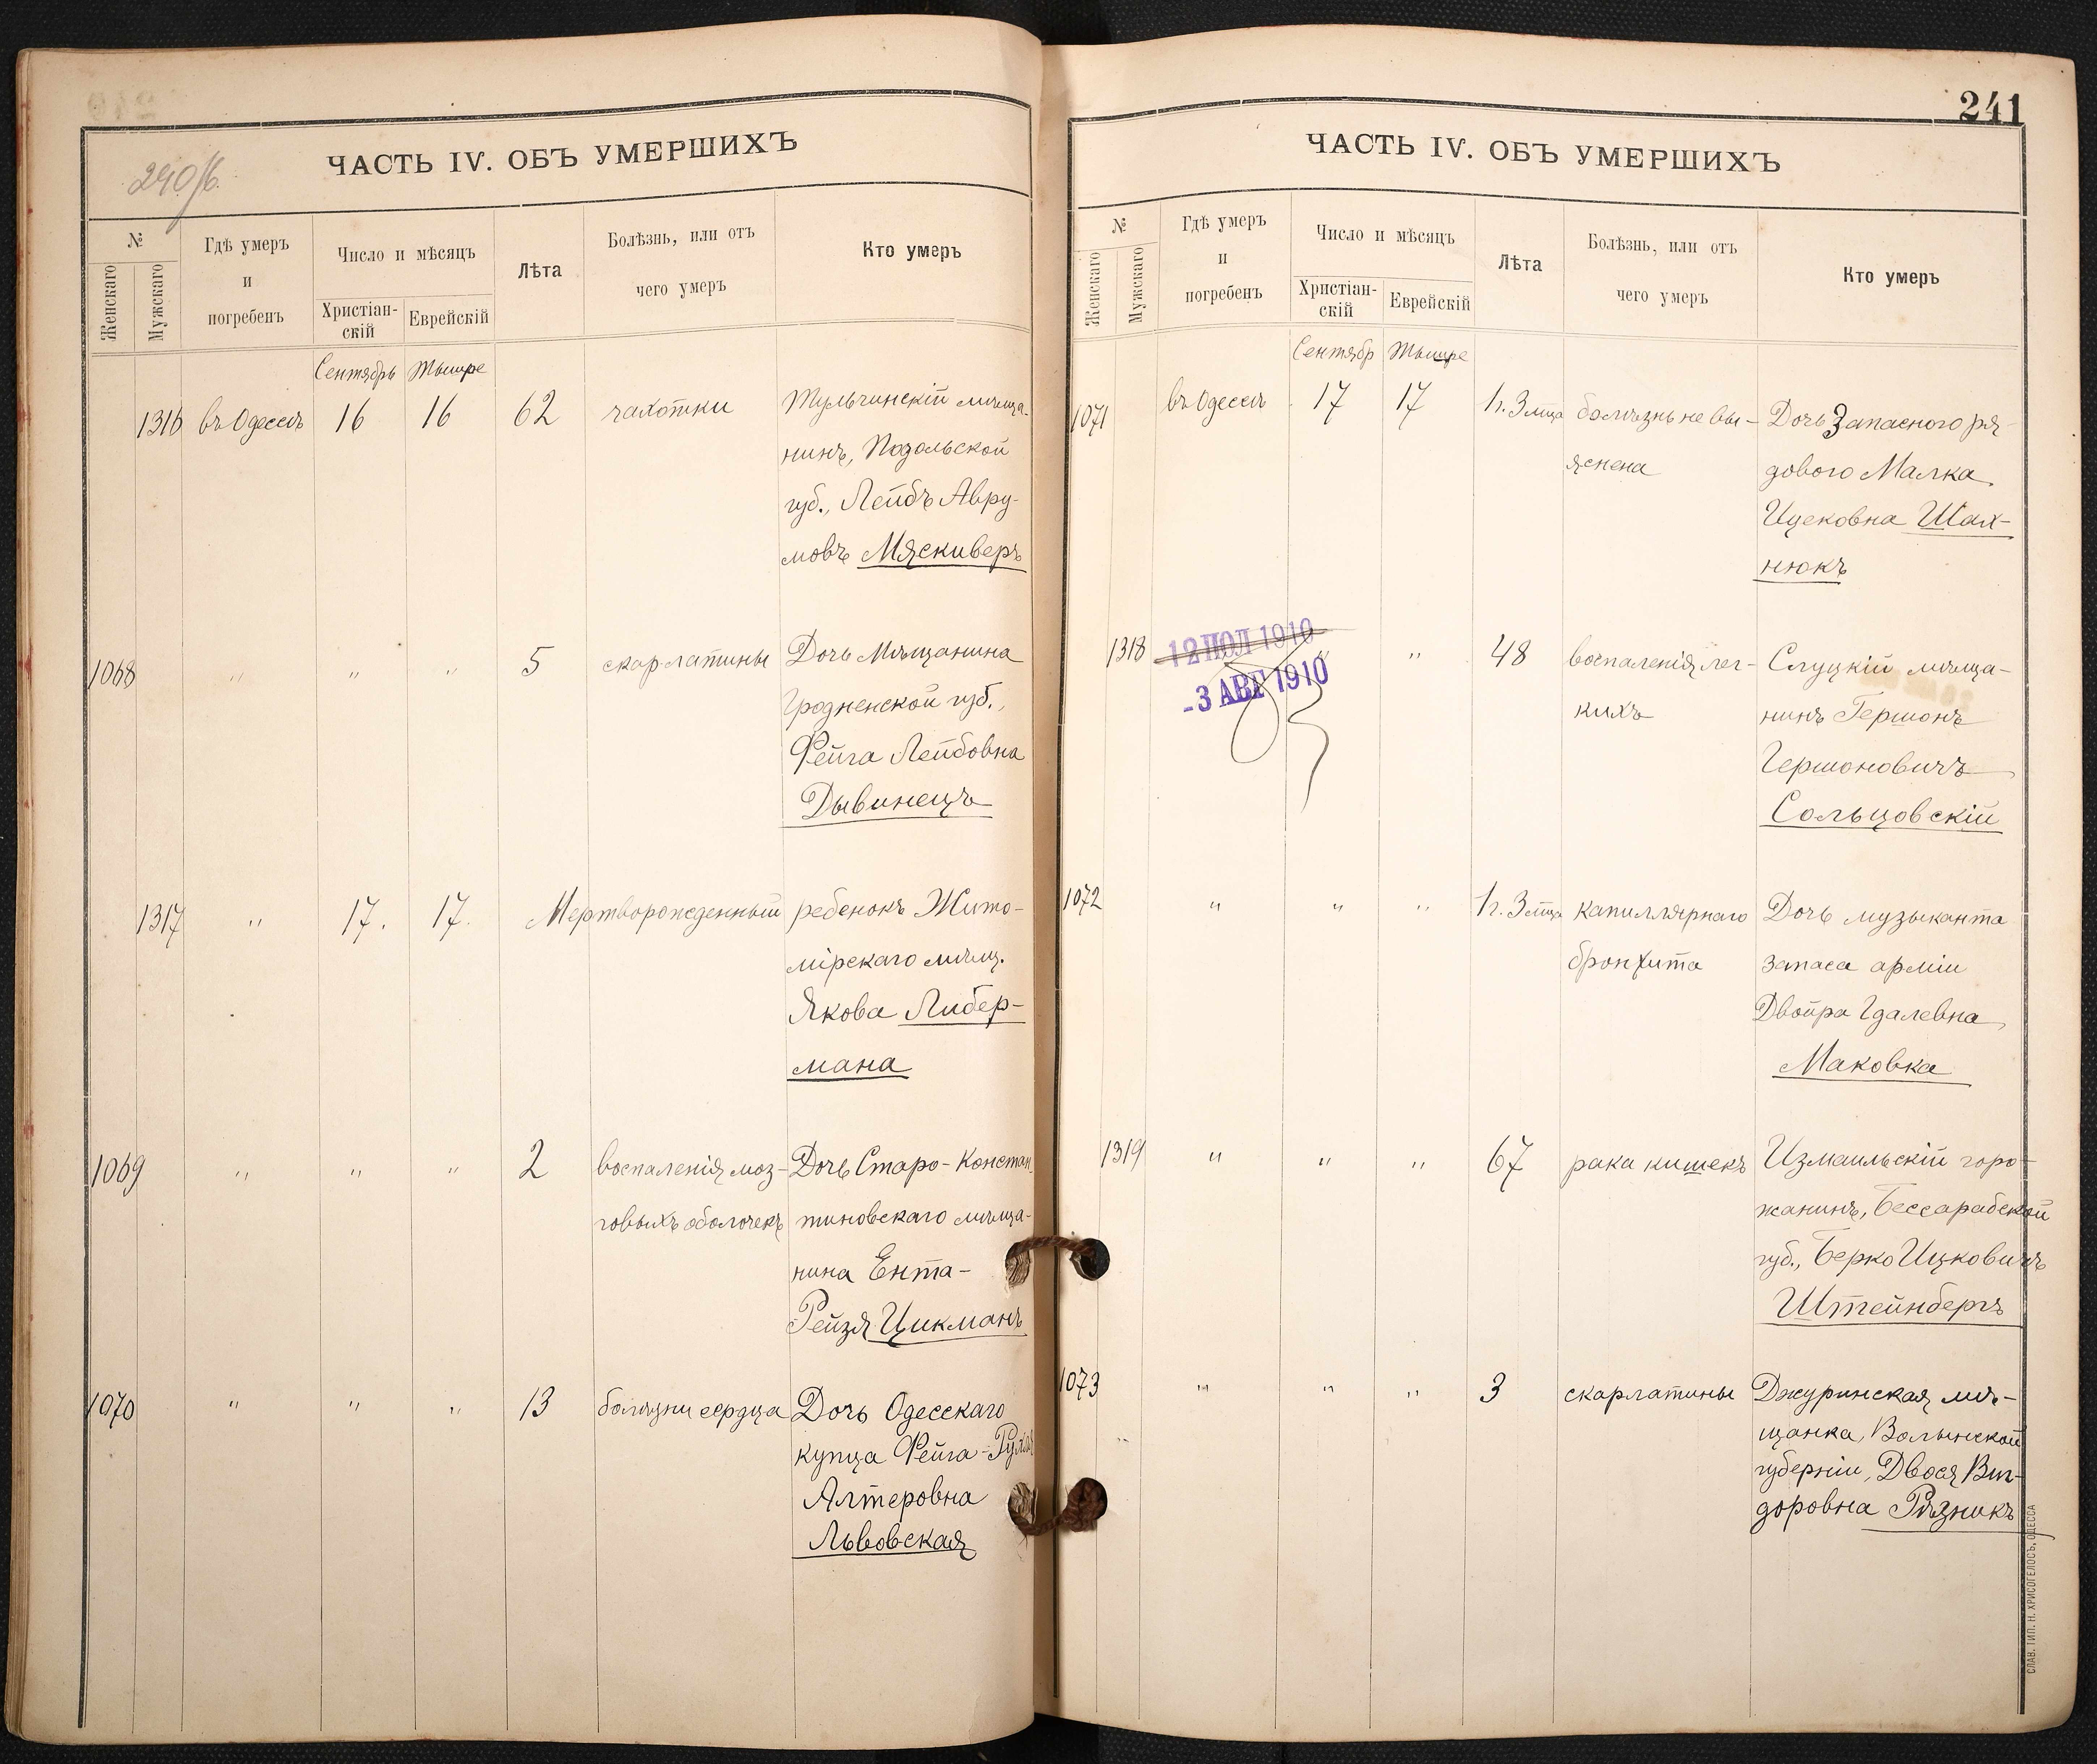 240/б.
ЧАСТЬ IV. ОБЪ УМЕРШИХЪ
№
Женскаго
Мужскаго
Гдѣ умеръ
и
погребенъ
Число и мѣсяцъ
Христіан-
скій
Еврейскій
Лѣта
Болѣзнь, или отъ
чего умеръ
Кто умеръ
Сентябрь Тышре
1316 въ Одессѣ 16 16 62 чахотки Тульчинскій мѣща-
нинъ, Подольской
губ., Лейбъ Авру-
мовъ Мяскиверъ
1068 " " " 5 скарлатины Дочь Мѣщанина
Гродненской губ.,
Фейга Лейбовна
Дывинецъ
1317 " 17. 17. Мертворожденный ребенокъ Жито-
мірскаго мѣщ.
Якова Либер-
мана
1069 " " " 2 воспаленія моз- Дочь Старо-Констан-
говыхъ оболочекъ тиновскаго мѣща-
нина Ента-
Рейзя Цикманъ
1070 " " " 13 болѣзни сердца Дочь Одесскаго
купца Фейга-Рухля
Алтеровна
Львовская
241
ЧАСТЬ IV. ОБЪ УМЕРШИХЪ
№
Женскаго
Мужскаго
Гдѣ умеръ
и
погребенъ
Число и мѣсяцъ
Христіан-
скій
Еврейскій
Лѣта
Болѣзнь, или отъ
чего умеръ
Кто умеръ
Сентябр Тышре
1071 въ Одессѣ 17 17 1г. 3 мца болѣзнь не вы- Дочь Запасного ря-
яснена дового Малка
Ицековна Шах-
нюкъ
1318 12 ІЮЛ 1910 " " 48 воспаленія лег- Слуцкій мѣща-
-3 АВГ 1910
кихъ нинъ Гершонъ
Гершоновичъ
Сольцовскій
1072 " " " 1г. 3 мца капиллярнаго Дочь музыканта
бронхита запаса арміи
Двойра Гдалевна
Маковка
1319 " " " 67 рака кишекъ Измаильскій горо-
жанинъ, Бессарабской
губ., Берко Ицковичъ
Штейнбергъ
1073 " " " 3 скарлатины Джуринская мѣ-
щанка, Волынской
губерніи, Двося Виг-
доровна Рѣзникъ
СЛАВ. ТИП. Н. ХРИСОГЕЛОСЪ, ОДЕССА